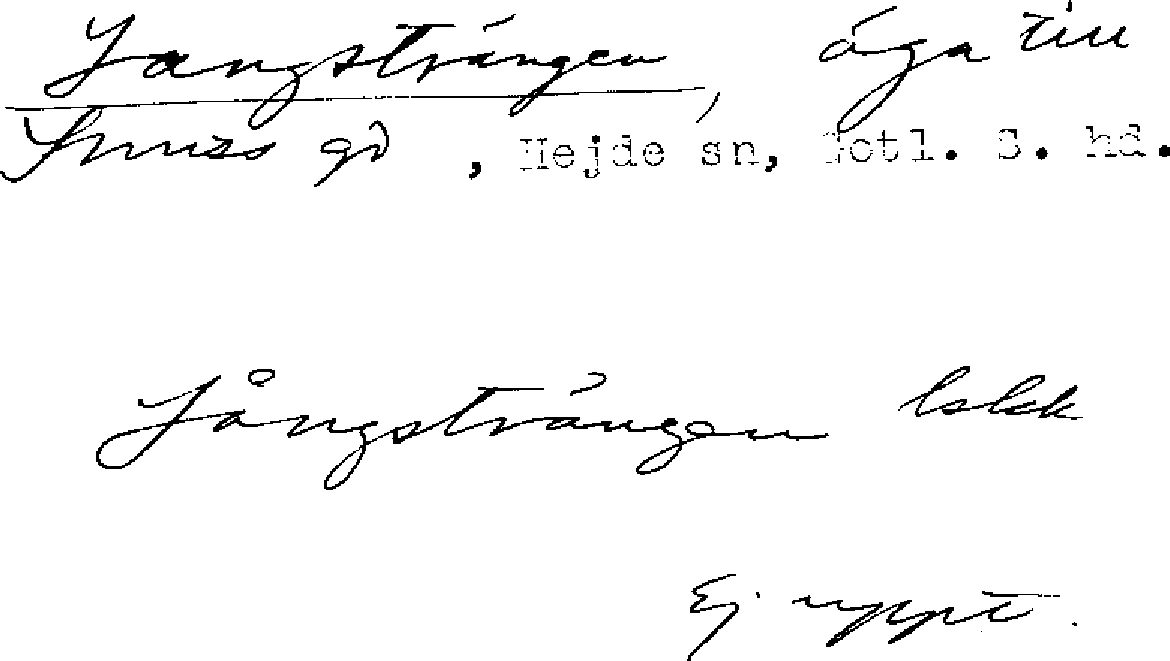 Langsträngen, äga till
Smiss gd, Hejde sn, Gotl. S. hd.
Långsträngen lskk
Ej uppt.